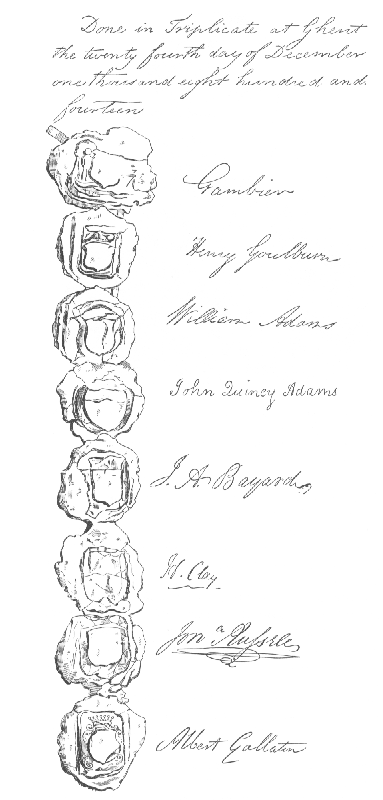 Done in Triplicate at Ghent
the twenty fourth day of December
one thousand eight hundred and
fourteen
Gambier
Henry Goulburn
William Adams
John Quincy Adams
J. A. Bayard
H. Clay
Jon. Russell
Albert Gallatin